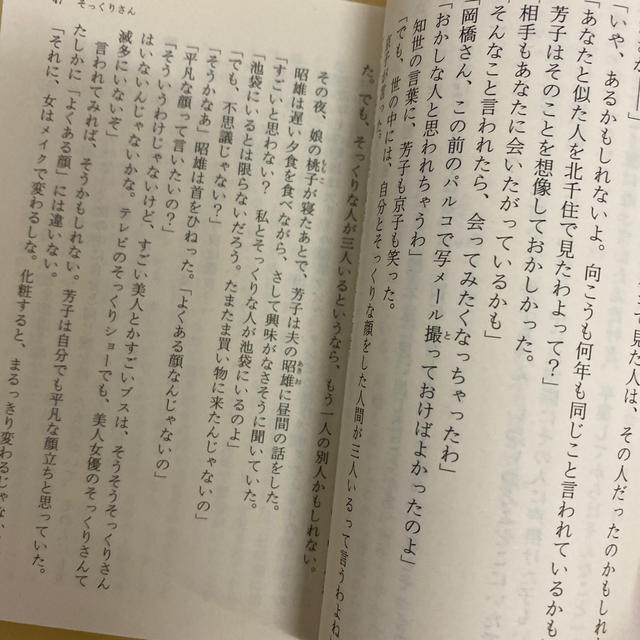 て見た人は、その人だったのかもしれ
「いや、あるかもしれないよ。向こうも何年も同じこと言われているかも
「あなたと似た人を北千住で見たわよって？」
芳子はそのことを想像しておかしかった。
「相手もあなたに会いたがっているかも」
「そんなこと言われたら、会ってみたくなっちゃったわ」
「岡橋さん、この前のパルコで写メール撮っておけばよかったのよ」
「おかしな人と思われちゃうわ」
知世の言葉に、芳子も京子も笑った。
「でも、世の中には、自分とそっくりな顔をした人間が三人いるって言うわよね
47 そっくりさん
た。でも、そっくりな人が三人いるというなら、もう一人の別人かもしれない。
その夜、娘の桃子が寝たあとで、芳子は夫の昭雄に昼間の話をした。
昭雄は遅い夕食を食べながら、さして興味がなさそうに聞いていた。
「すごいと思わない？　私とそっくりな人が池袋にいるのよ」
「池袋にいるとは限らないだろう。たまたま買い物に来たんじゃないの」
「でも、不思議じゃない？」
「そうかなあ」昭雄は首をひねった。「よくある顔なんじゃないの」
「平凡な顔って言いたいの？」
「そういうわけじゃないけど、すごい美人とかすごいブスは、そうそうそっくりさん
はいないんじゃないかな。テレビのそっくりショーでも、美人女優のそっくりさんて
滅多にいないぞ」
言われてみれば、そうかもしれない。芳子は自分でも平凡な顔立ちと思っていた。
たしかに「よくある顔」には違いない。
「それに、女はメイクで変わるしな。化粧すると、まるっきり変わるじゃない